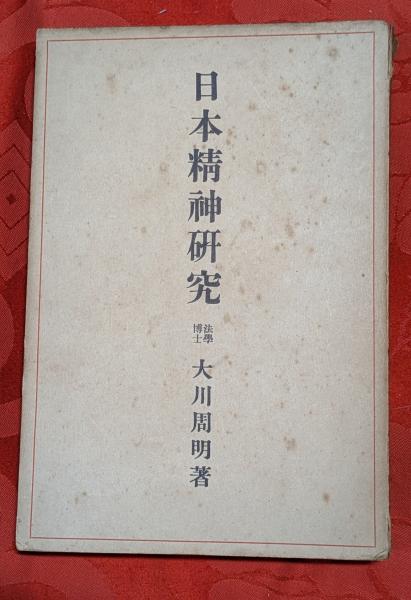 日本精神研究
法學
博士
大川周明著